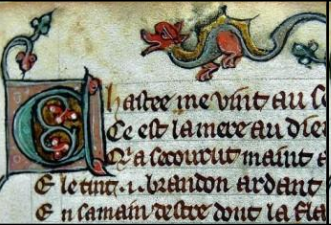 hastee me vint au se
Ce est la mere au die
Q'a secourut maint a
E le tint .i. brandon ardant
E n sa main destre dont la fla